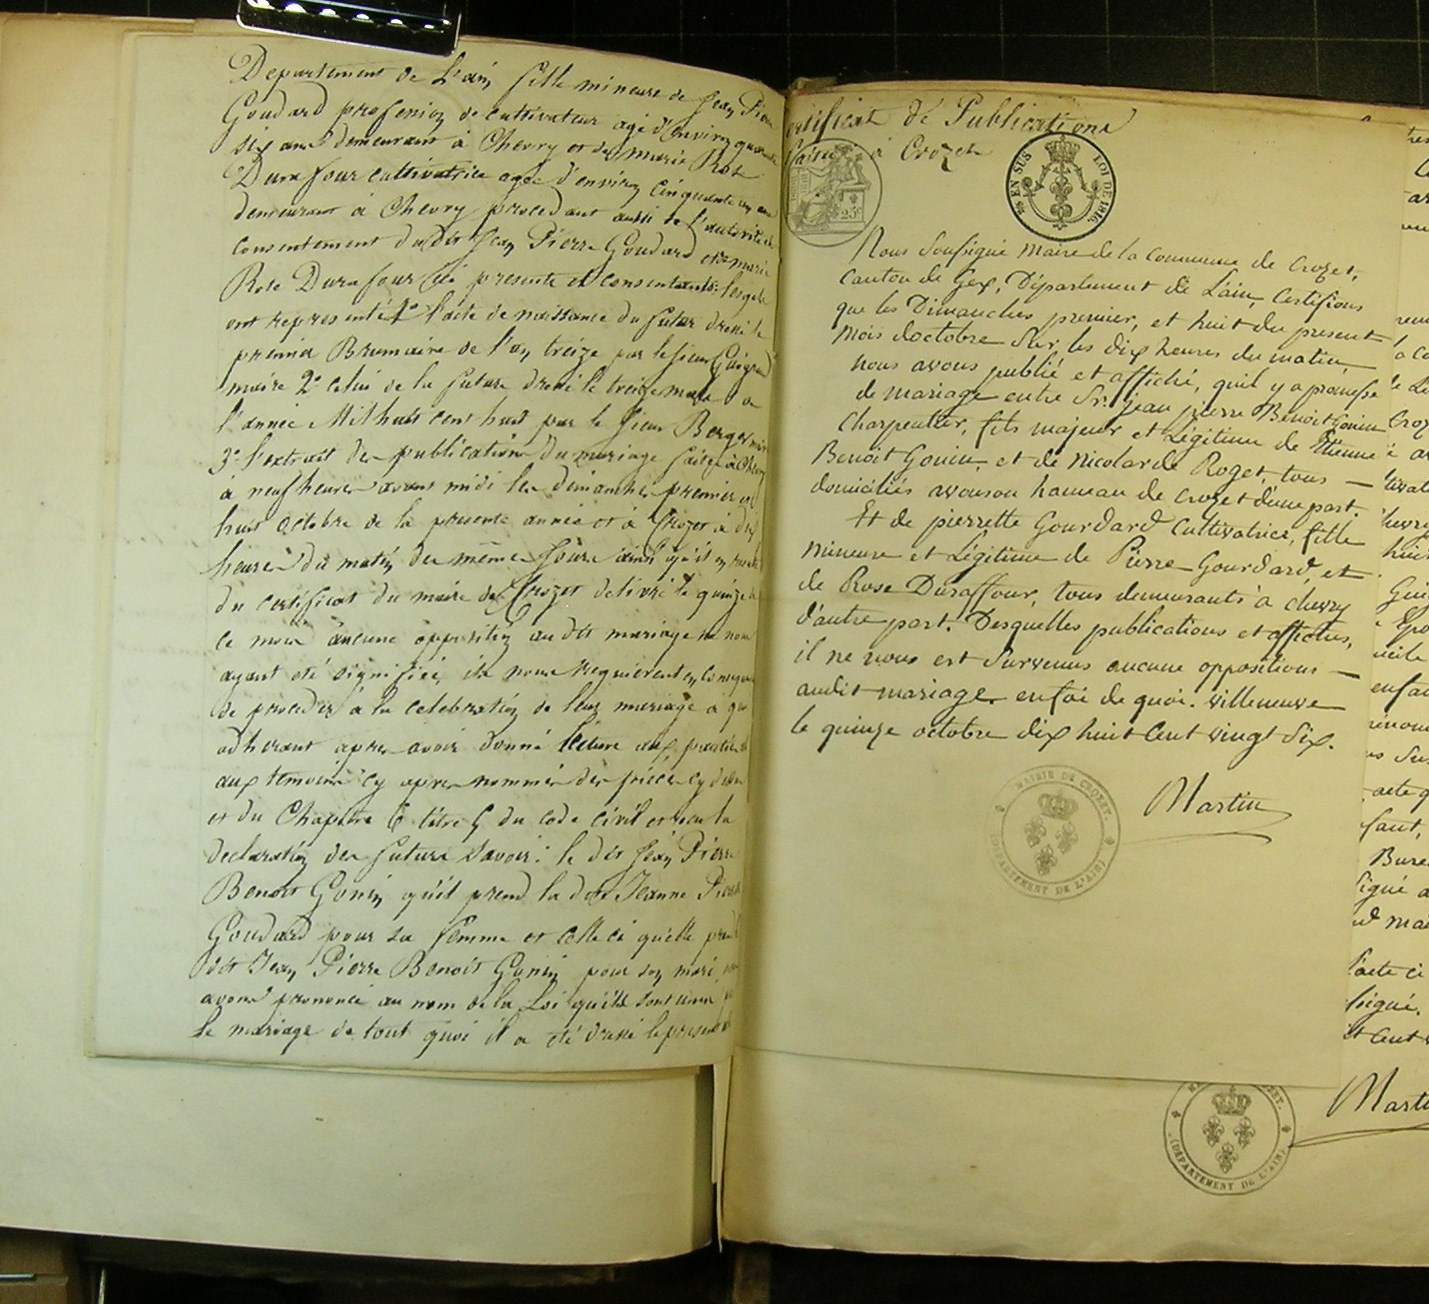 Departement de L'ain fille mineure de Jean Pierre
Goudard profession de cultivateur agé d'environ quarante
six ans demeurant à Chevry et de Marie Rose
Durafour cultivatrice agée d'environ cinquante un ans
demeurant à Chevry procedant aussi de l'autorité et
consentement du dit Jean Pierre Goudard et de marie
Rose Durafour ici presents et consentants: lesquels
ont representé 1° l'acte de naissance du futur dressé le
premier Brumaire de l'an treize par le sieur
maire 2° celui de la future dressé le treize mars de
l'année Mil huit cent huit par le sieur Berger maire
3° l'extrait des publications du mariage faites à Chevry
à neuf heures avant midi les dimanches premier et
huit octobre de la presente année et à Crozet à dix
heures du matin des même jours ainsi qu'il en resulte
du certificat du maire de Crozet delivré le quinze de
ce mois aucune opposition au dit mariage ne nous
ayant été signifiée, ils nous requierent en consequence
de proceder à la celebration de leur mariage à quoi
adherant apres avoir donné lecture aux parties et
aux temoins cy apres nommés des pièces cy dessus
et du Chapitre 6 titre 5 du code civil et recu la
declaration des futurs savoir: le dit Jean Pierre
Benoit Gonin qu'il prend la dite Jeanne Pierrette
Goudard pour sa femme et celle ci qu'elle prend
dit Jean Pierre Benoit Gonin pour son mari, nous
avons prononcé au nom de la Loi qu'ils sont unis
le mariage de tout quoi il a été dressé le present
Certificat de Publications
Mairie à Crozet
25c
EN SUS LOI DE 1816
Nous Soussigné Maire de la Commune de Crozet,
Canton de Gex, Département de L'ain, Certifions
que les Dimanches premier, et huit du present
mois doctobre Sur les dix heures du matin,
nous avons publié et affiché, quil y a promesse
de mariage entre Sr. jean pierre Benoit Gonin
Charpentier, fils majeur et Légitime de Etienne
Benoit Gonin, et de Nicolarde Roget, tous —
domiciliés avouson hameau de Crozet dune part.
Et de pierrette Gourdard Cultivatrice, fille
mineure et Légitime de Pierre Gourdard, et
de Rose Duraffour, tous demeurants a chevry
d'autre part. Desquelles publications et affiches,
il ne nous est Survenus aucune oppositions —
audit mariage. en foi de quoi. Villeneuve
le quinze octobre dix huit Cent vingt Six.
Martin
MAIRIE DE CROZET.
(DÉPARTEMENT DE L'AIN)
Martin
(DÉPARTEMENT DE L'AIN)